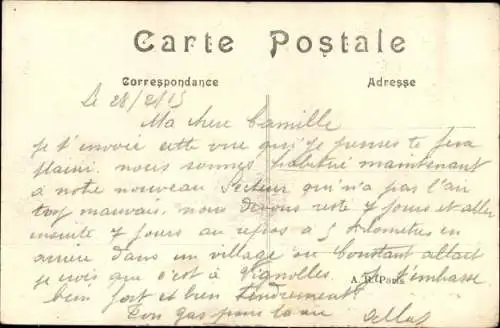 Carte Postale
Correspondance
Adresse
Le 28/2/15
Ma chere Camille
je t'envoie cette vue qui je penses te fera
plaisir. nous sommes habitué maintenant
à notre nouveau Secteur qui n'a pas l'air
trop mauvais. nous devons reste 7 jours et aller
ensuite 7 jours au repos a 5 kilometres en
arriere dans un village ou Constant allait
je crois que c'est à Vignolles. t'embrasse
bien fort et bien tendrement
A. R. Paris
Ton gas pour la vie